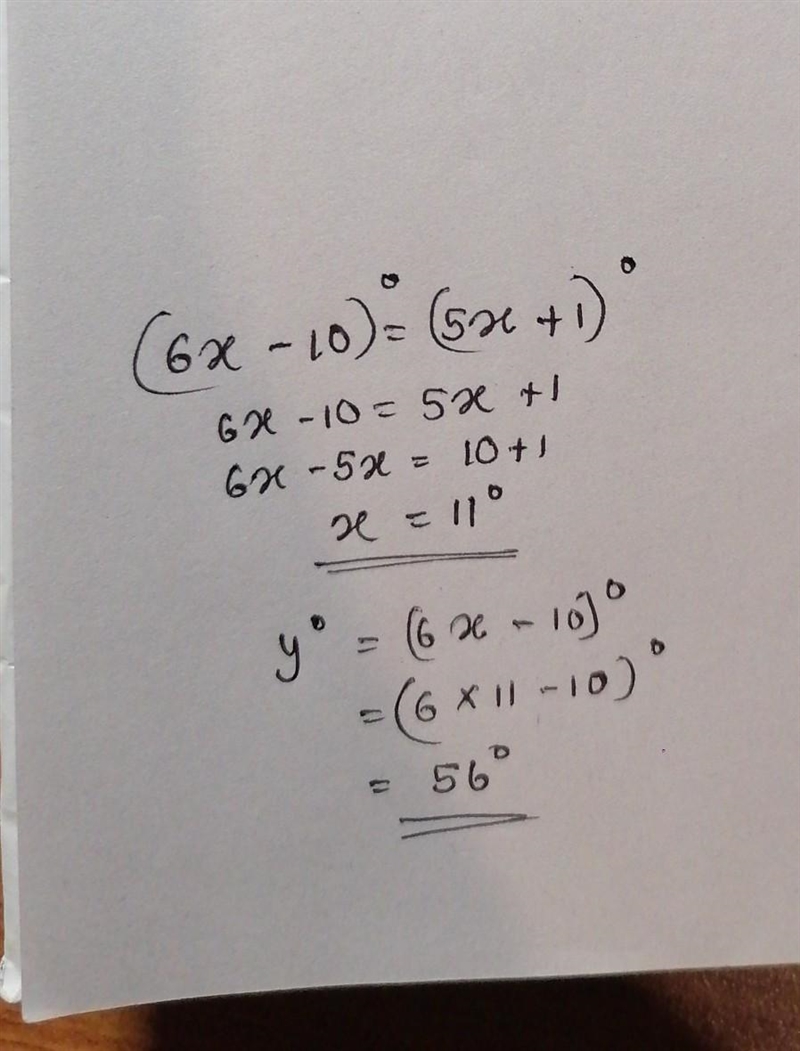 (6x - 10)° = (5x + 1)°
6x - 10 = 5x + 1
6x - 5x = 10 + 1
x = 11°
y° = (6x - 10)°
= (6 × 11 - 10)°
= 56°